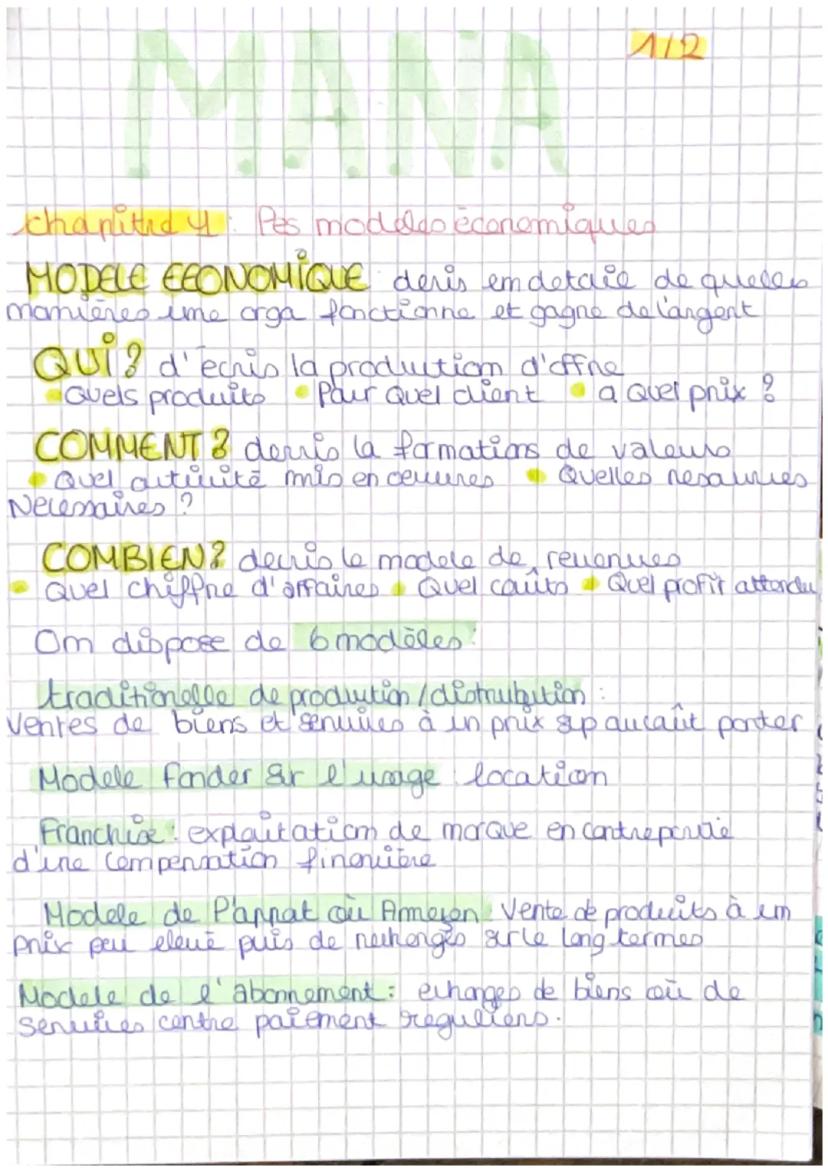 MANA
1/2
chapitre 4 : les modeles économiques
MODELE ECONOMIQUE decris em detaile de quelles
manières une orga fonctionne et gagne de l'argent
QUI ? d'ecris la production d'offre
• Quels produits • Pour quel client • a quel prix ?
COMMENT ? decris la formations de valeurs
• Quel activité mis en oeuvres • Quelles ressources
Necessaires ?
COMBIEN ? decris le modele de revenues
• Quel chiffre d'affaires • Quel coûts • Quel profit attendu
On dispose de 6 modèles :
traditionelle de production / distrubution :
Ventes de biens et services à un prix sup au coût porter
Modele fonder sur l'usage : location
Franchise : exploitation de marque en contrepartie
d'une compensation financière
Modele de l'appat où Ameçon : Vente de produits à un
prix peu elevé puis de recharges sur le long termes
Modele de l'abonnement : echanges de biens où de
Services contre paiement reguliers.